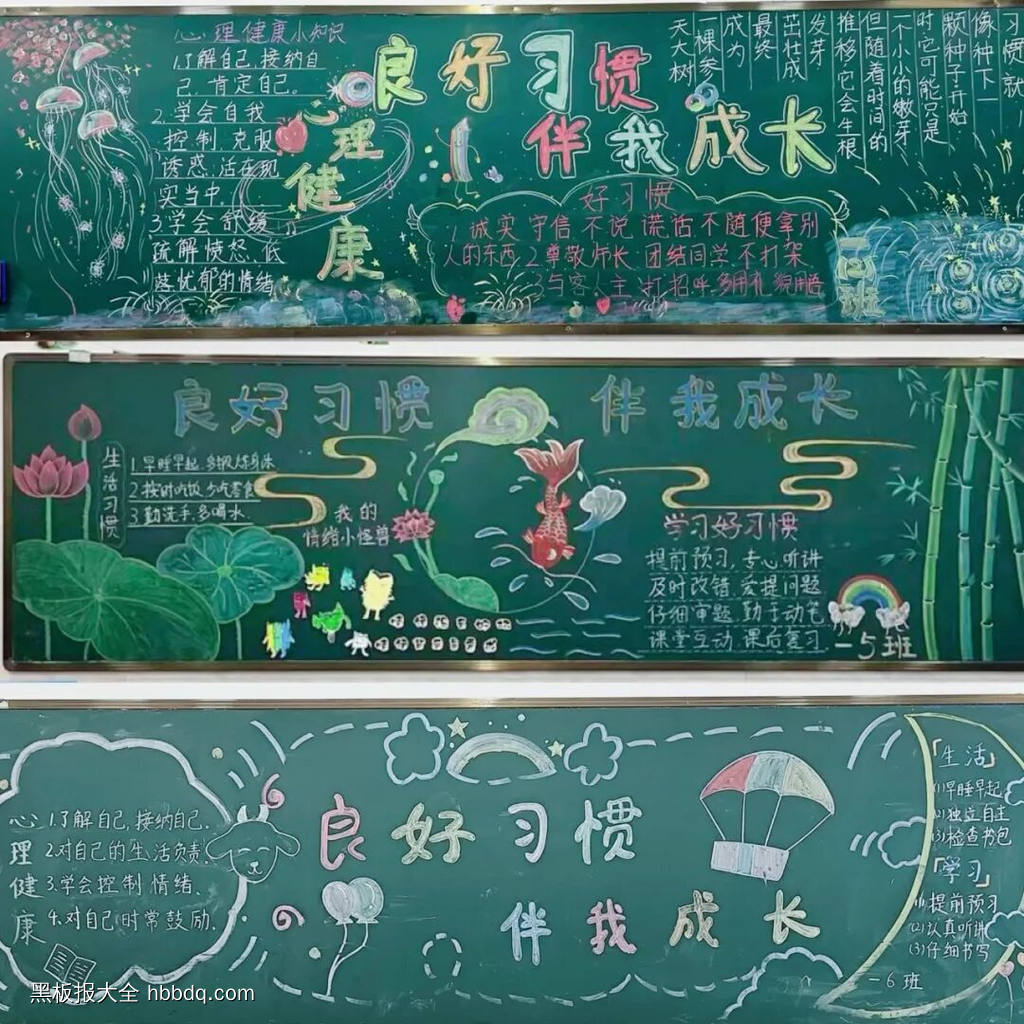 心理健康小知识
1.了解自己、接纳自
己、肯定自己。
2.学会自我
控制、克服
诱惑、活在现
实当中
3.学会舒缓
疏解愤怒、低
落、忧郁的情绪
心理健康
良好习惯
伴我成长
好习惯
1.诚实守信不说谎话不随便拿别
人的东西 2.尊敬师长 团结同学不打架
3.与客人主
习惯就
像种下一
颗种子开始
时它可能只是
一个小小的嫩芽
但随着时间的
推移它会生根
发芽
茁壮成
最终
成为
一棵参
天大树
班
良好习惯 伴我成长
生活习惯
1.早睡早起、多锻炼身体
2.按时吃饭、少吃零食
3.勤洗手、多喝水、
我的
情绪小怪兽
学习好习惯
提前预习，专心听讲
及时改错 爱提问题
仔细审题 勤于动笔
课堂互动 课后复习
一5班
心理健康
1.了解自己，接纳自己.
2.对自己的生活负责、
3.学会控制情绪、
4.对自己时常鼓励.
良好习惯
伴我成长
「生活」
(1)早睡早起
(2)独立自主
(3)检查书包
「学习」
(1)提前预习
(2)认真听讲
(3)仔细书写
一6班
黑板报大全 hbbdq.com